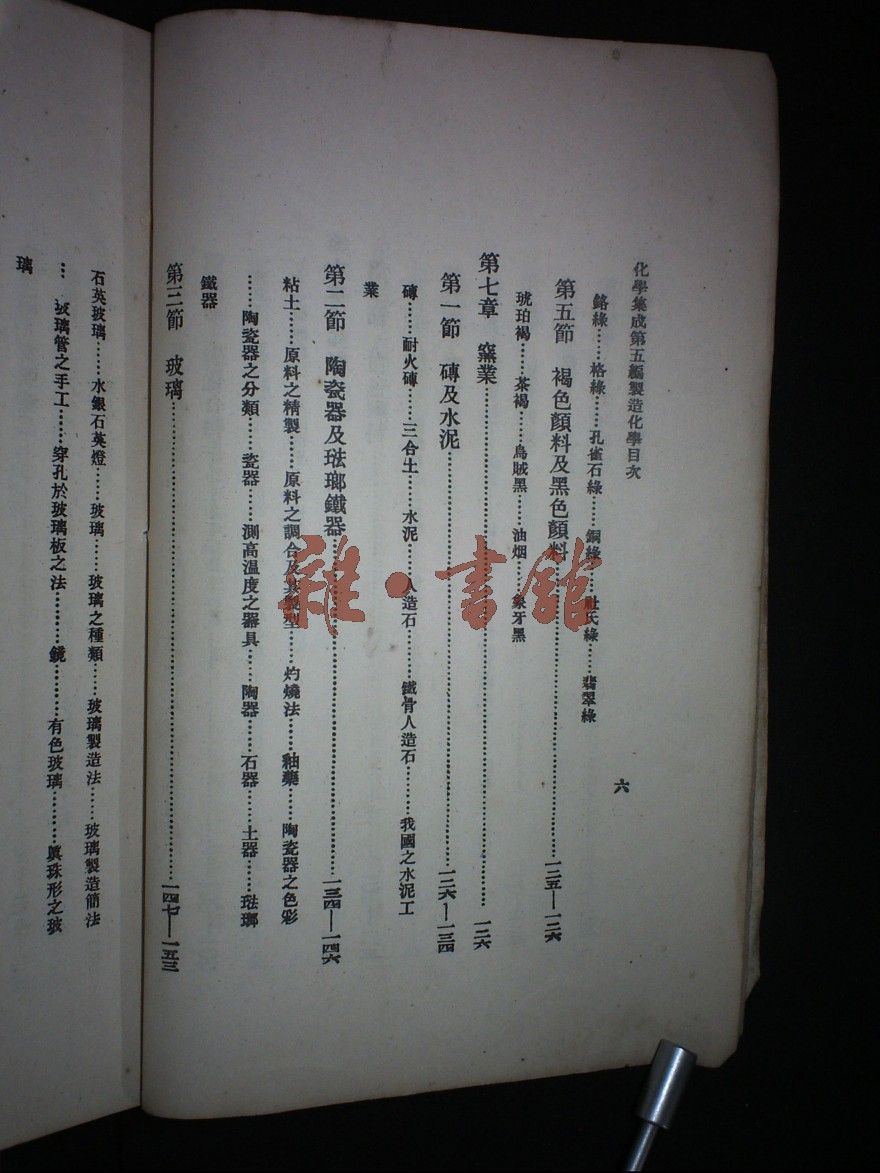 化學集成第五編製造化學目次
六
鉻綠……格綠……孔雀石綠……銅綠……杜氏綠……翡翠綠
第五節　褐色顏料及黑色顏料……一二五—一二六
琥珀褐……茶褐……烏賊黑……油烟……象牙黑
第七章　窰業……一二六
第一節　磚及水泥……一二六—一三四
磚……耐火磚……三合土……水泥……人造石……鐵骨人造石……我國之水泥工
業
第二節　陶瓷器及琺瑯鐵器……一三四—一四六
粘土……原料之精製……原料之調合及其製型……灼燒法……釉藥……陶瓷器之色彩
……陶瓷器之分類……瓷器……測高溫度之器具……陶器……石器……土器……琺瑯
鐵器
第三節　玻璃……一四七—一五三
石英玻璃……水銀石英燈……玻璃……玻璃之種類……玻璃製造法……玻璃製造簡法
……玻璃管之手工……穿孔於玻璃板之法……鏡……有色玻璃……眞珠形之玻
璃
雜·書館